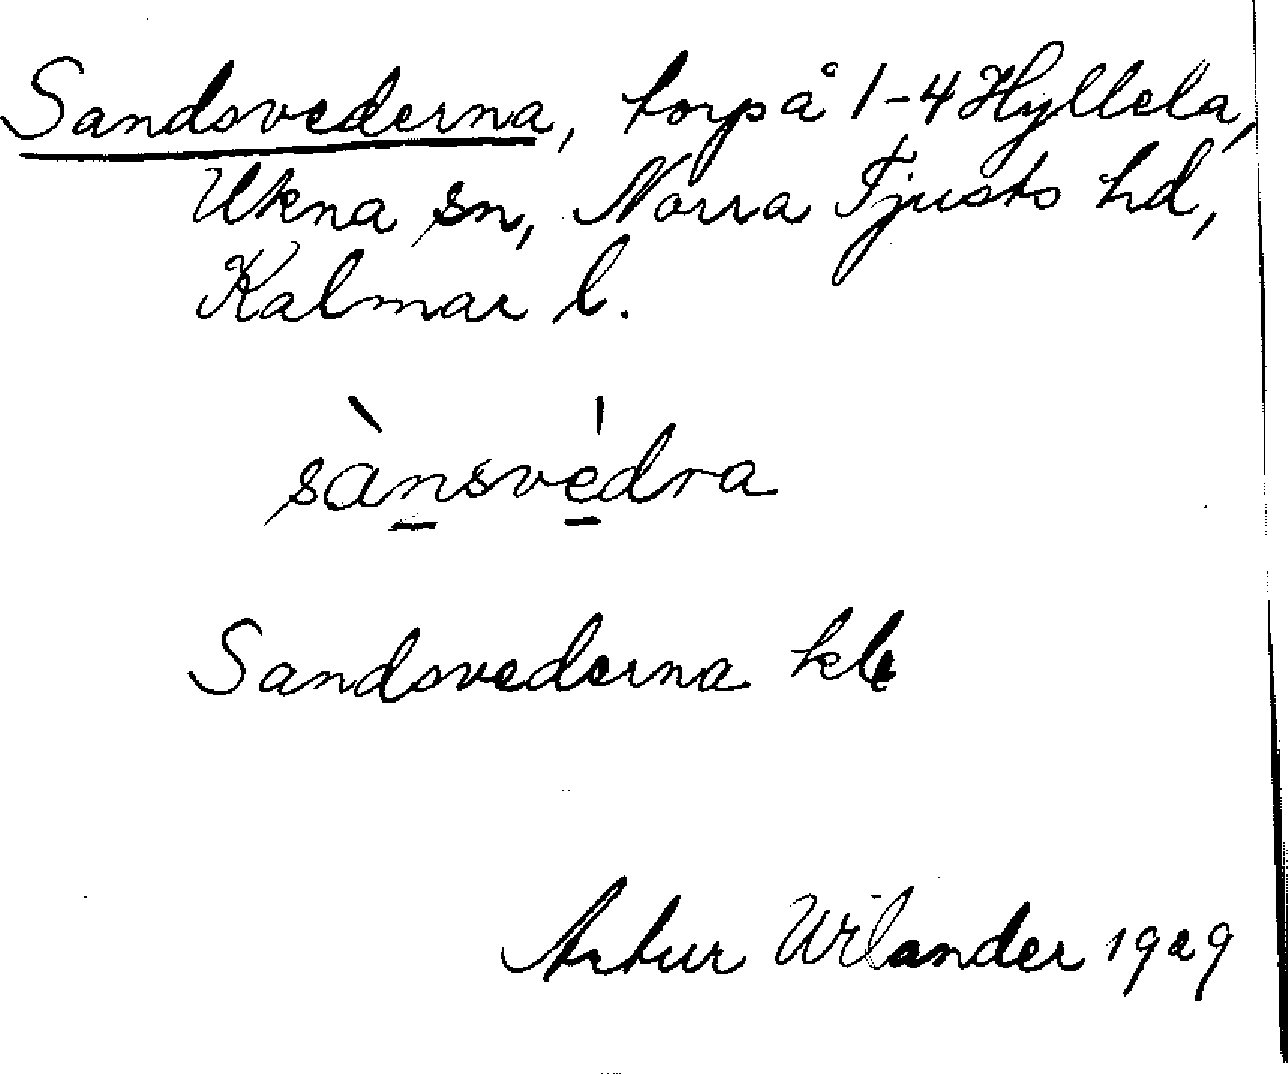 Sandsvederna, torp å 1-4 Hyllela,
Ukna sn, Norra Tjusts hd,
Kalmar l.
sànsvédra
Sandsvederna
Artur Wilander 1929